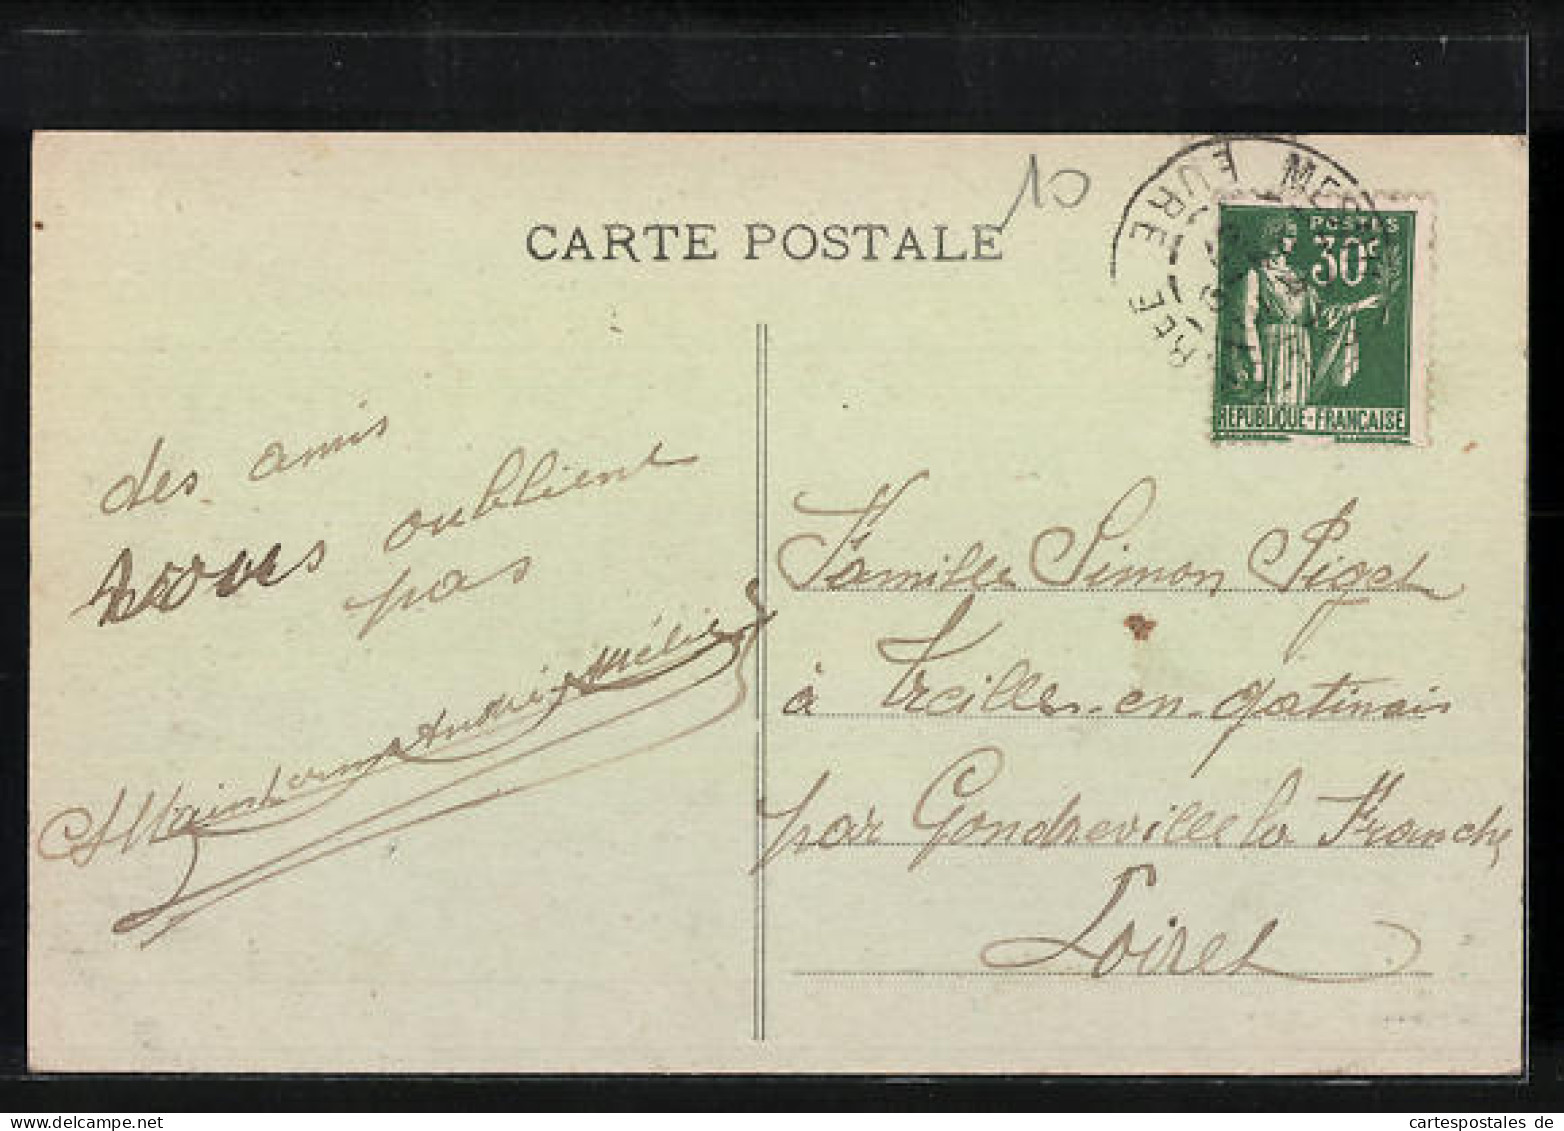 10
CARTE POSTALE
EURE
MES
POSTES
30c
REPUBLIQUE-FRANÇAISE
des amis
oublient
pas
André Mélie
Famille Simon Piget
à Treilles-en-gatinais
par Gondreville la Franche
Loiret
cartespostales de